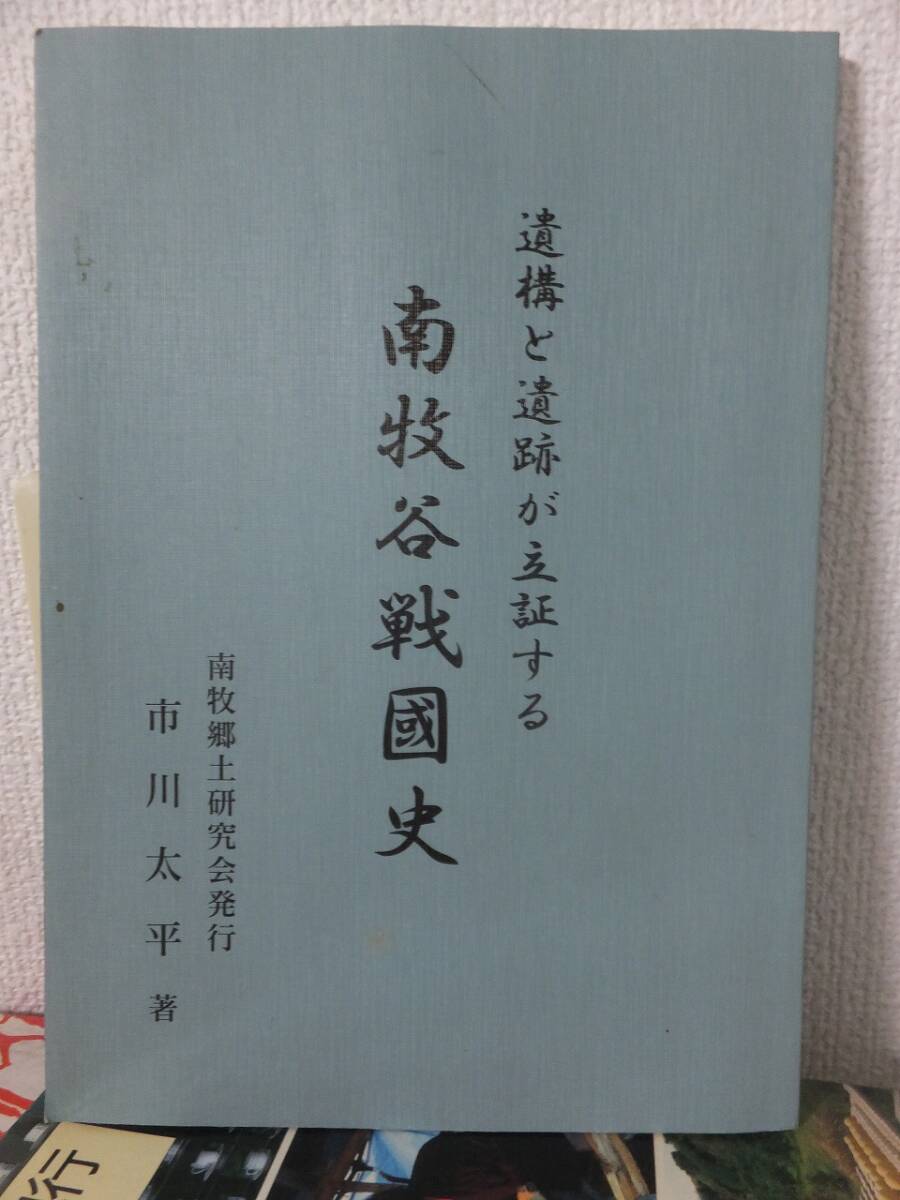 遺構と遺跡が立証する
南牧谷戦國史
南牧郷土研究会発行
市川太平 著
行